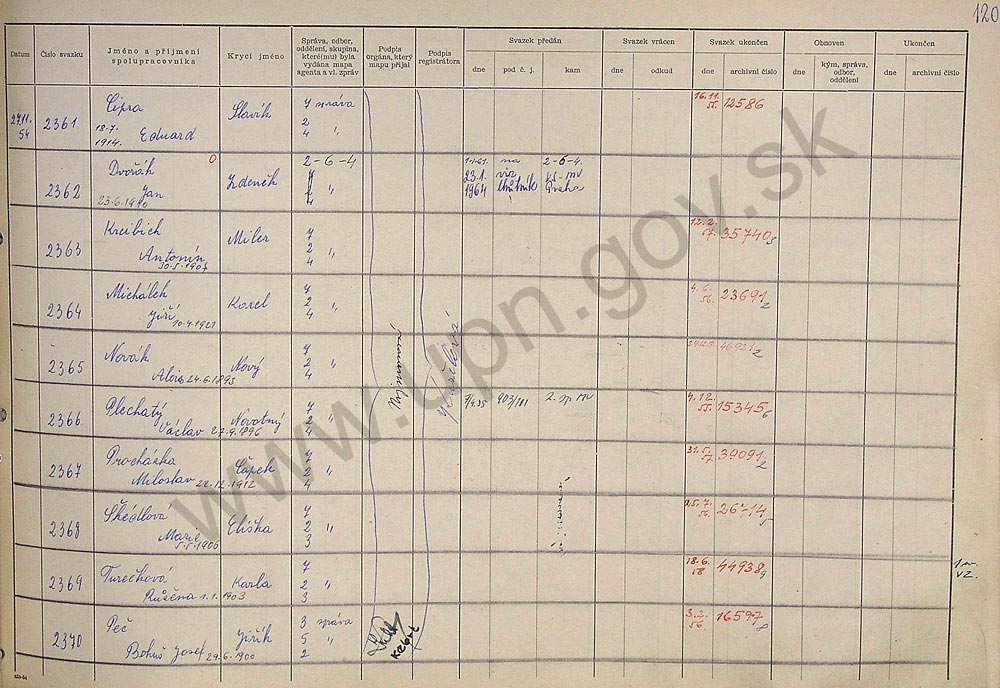 120
Datum
Číslo svazku
Jméno a příjmení
spolupracovníka
Krycí jméno
Správa, odbor,
oddělení, skupina,
které(mu) byla
vydána mapa
agenta a vl. zpráv
Podpis
orgána, který
mapu přijal
Podpis
registrátora
Svazek předán
dne
pod č. j.
kam
Svazek vrácen
dne
odkud
Svazek ukončen
dne
archivní číslo
Obnoven
dne
kým, správa,
odbor,
oddělení
Ukončen
dne
archivní číslo
54
2361
Cipra
18.7.
1914.
Eduard
Slavík
4 správa
2
4 "
16.11.
55.
12586
2362
Dvořák
Jan
23.6.1910
0
Zdeněk
2-6-4
4 "
1.1.61.
23.1.
1964
na
2-6-4.
KS-MV
Praha
2363
Kreibich
Antonín
30.5.1907
Miler
4
2
4 "
12.2.
57.
35740
3
2364
Michálek
Jiří
10.4.1921
Karel
4
2
4 "
4.6.
56.
23691
2
2365
Novák
Alois 24.6.1893
Nový
4
2
4 "
46921
2
2366
Plechatý
Václav 27.9.1896
Novotný
4
2
4 "
903/101
2. sp MV
4.12.
55.
15345
6
2367
Procházka
Miloslav 22.12.1912
Čápek
4
2
4 "
31.5.
57
39091
2
2368
Škédlová
Marie
5.5.1906
Eliška
4
2
3 "
25.7.
56.
26714
5
2369
Turečková
Růžena 1.1.1903
Karla
4
2
3 "
18.6.
58
44938
9
VZ.
2370
Peč
Bohuš Josef 29.6.1900
Jiřík
3 správa
5
2 "
3.2.
56.
16597
8
www.upn.gov.sk